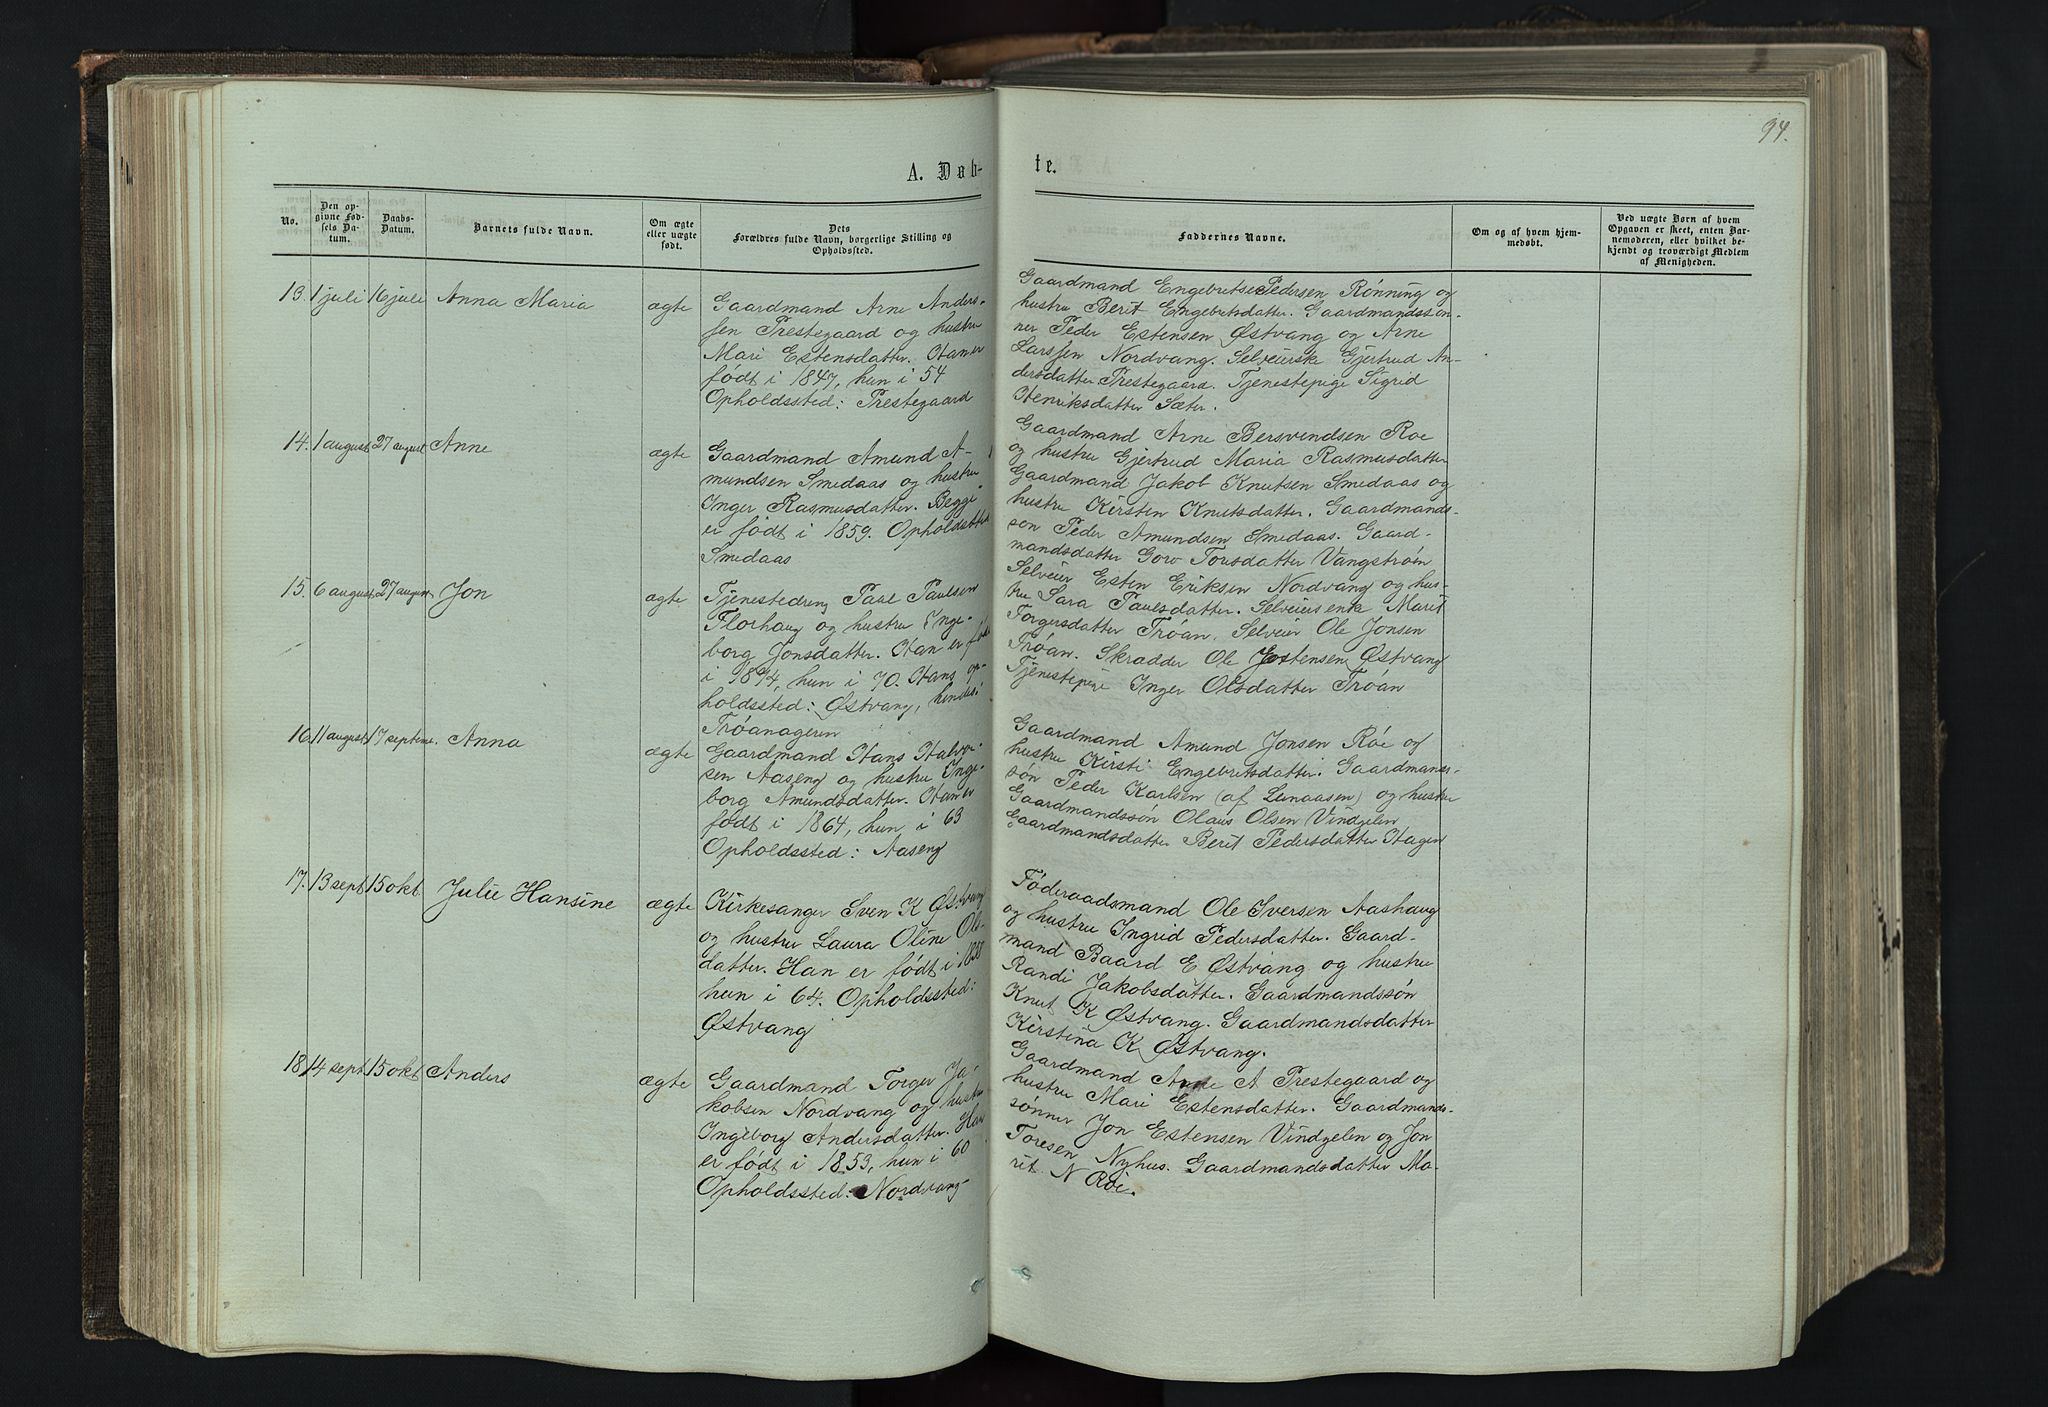 94.
A. Døb-
te.
No.
Den op-
givne Fød-
sels Da-
tum.
Daabs-
Datum.
Barnets fulde Navn.
Om ægte
eller uægte
født.
Dets
Forældres fulde Navn, borgerlige Stilling og
Opholdssted.
Faddernes Navne.
Om og af hvem hjem-
medøbt.
Ved uægte Børn af hvem
Opgaven er skeet, enten Bar-
nemoderen, eller hvilket be-
kjendt og troværdigt Medlem
af Menigheden.
13. 1 juli 16 juli Anna Maria ægte
Gaardmand Arne Anders-
sen Prestegaard og hustru
Mari Estensdatter. Han er
født i 1847, hun i 54
Opholdssted: Prestegaard
Gaardmand Engebret Pedersen Rönning og
hustru Berit Engebretsdatter. Gaardmandssøn-
ner Peder Estensen Østvang og Arne
Larssen Nordvang. Selveierske Gjertrud An-
dersdatter Prestegaard. Tjenestepige Sigrid
Henriksdatter Sæter.
14. 1 august 27 august Anne ægte
Gaardmand Amund A-
mundsen Smedaas og hustru
Inger Rasmusdatter. Begge
er født i 1859. Opholdssted
Smedaas
Gaardmand Arne Bersvendsen Roe
og hustru Gjertrud Maria Rasmusdatter
Gaardmand Jakob Knutsen Smedaas og
hustru Kirsten Knutsdatter. Gaardmands-
søn Peder Amundsen Smedaas. Gaard-
mandsdatter Goro Torsdatter Vangstrøen
15. 6 august 27 august Jon ægte
Tjenestedreng Paul Paulsen
Florhaug og hustru Inge-
borg Jonsdatter. Han er født
i 1874, hun i 70. Hans op-
holdssted: Østvang, hendes:
Tröanageren
Selveier Esten Eriksen Nordvang og hus-
tru Sara Paulsdatter. Selveiersenke Marit
Torgersdatter Tröan. Selveier Ole Jonsen
Tröan. Skrædder Ole Jostensen Østvang
Tjenestepige Inger Olsdatter Tröan
16. 11 august 17 septeme. Anna ægte
Gaardmand Hans Halvor-
sen Aaseng og hustru Inge-
borg Amundsdatter. Han er
født i 1864, hun i 63
Opholdssted: Aaseng
Gaardmand Amund Jonsen Röe og
hustru Kirsti Engebretsdatter. Gaardmands-
søn Peder Karlsen (af Lunaasen) og hustru
Gaardmandssøn Olaus Olsen Vindgelen
Gaardmandsdatter Berit Pedersdatter Hagen
17. 13 sept 15 okt Julie Hansine ægte
Kirkesanger Sven K Østvang
og hustru Laura Oline Ols-
datter. Han er født i 1858
hun i 64. Opholdssted:
Østvang
Föderaadsmand Ole Iversen Aashaug
og hustru Ingrid Pedersdatter. Gaard-
mand Baard E Østvang og hustru
Randi Jakobsdatter. Gaardmandssøn
Knut K Østvang. Gaardmandsdatter
Kirstina K Østvang.
18. 14 sept. 15 okt Anders ægte
Gaardmand Torger Ja-
kobsen Nordvang og hustru
Ingeborg Andersdatter. Han
er født i 1853, hun i 60
Opholdssted: Nordvang
Gaardmand Arne A Prestegaard og
hustru Mari Estensdatter. Gaardmands-
sønner Jon Estensen Vindgelen og Jon
Toresen Nyhus. Gaardmandsdatter Ma-
rit N Röe.